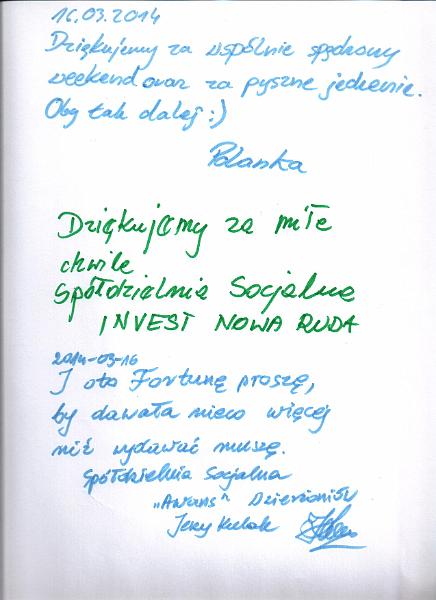 16.03.2014
Dziękujemy za wspólnie spędzony
weekend oraz za pyszne jedzenie.
Oby tak dalej :)
Polanka
Dziękujemy za miłe
chwile
Spółdzielnia Socjalna
INVEST NOWA RUDA
2014-03-16
I oto Fortunę proszę,
by dawała nieco więcej
niż wydawać muszę.
Spółdzielnia Socjalna
„Awans" Dzierżoniów
Jerzy Kulak